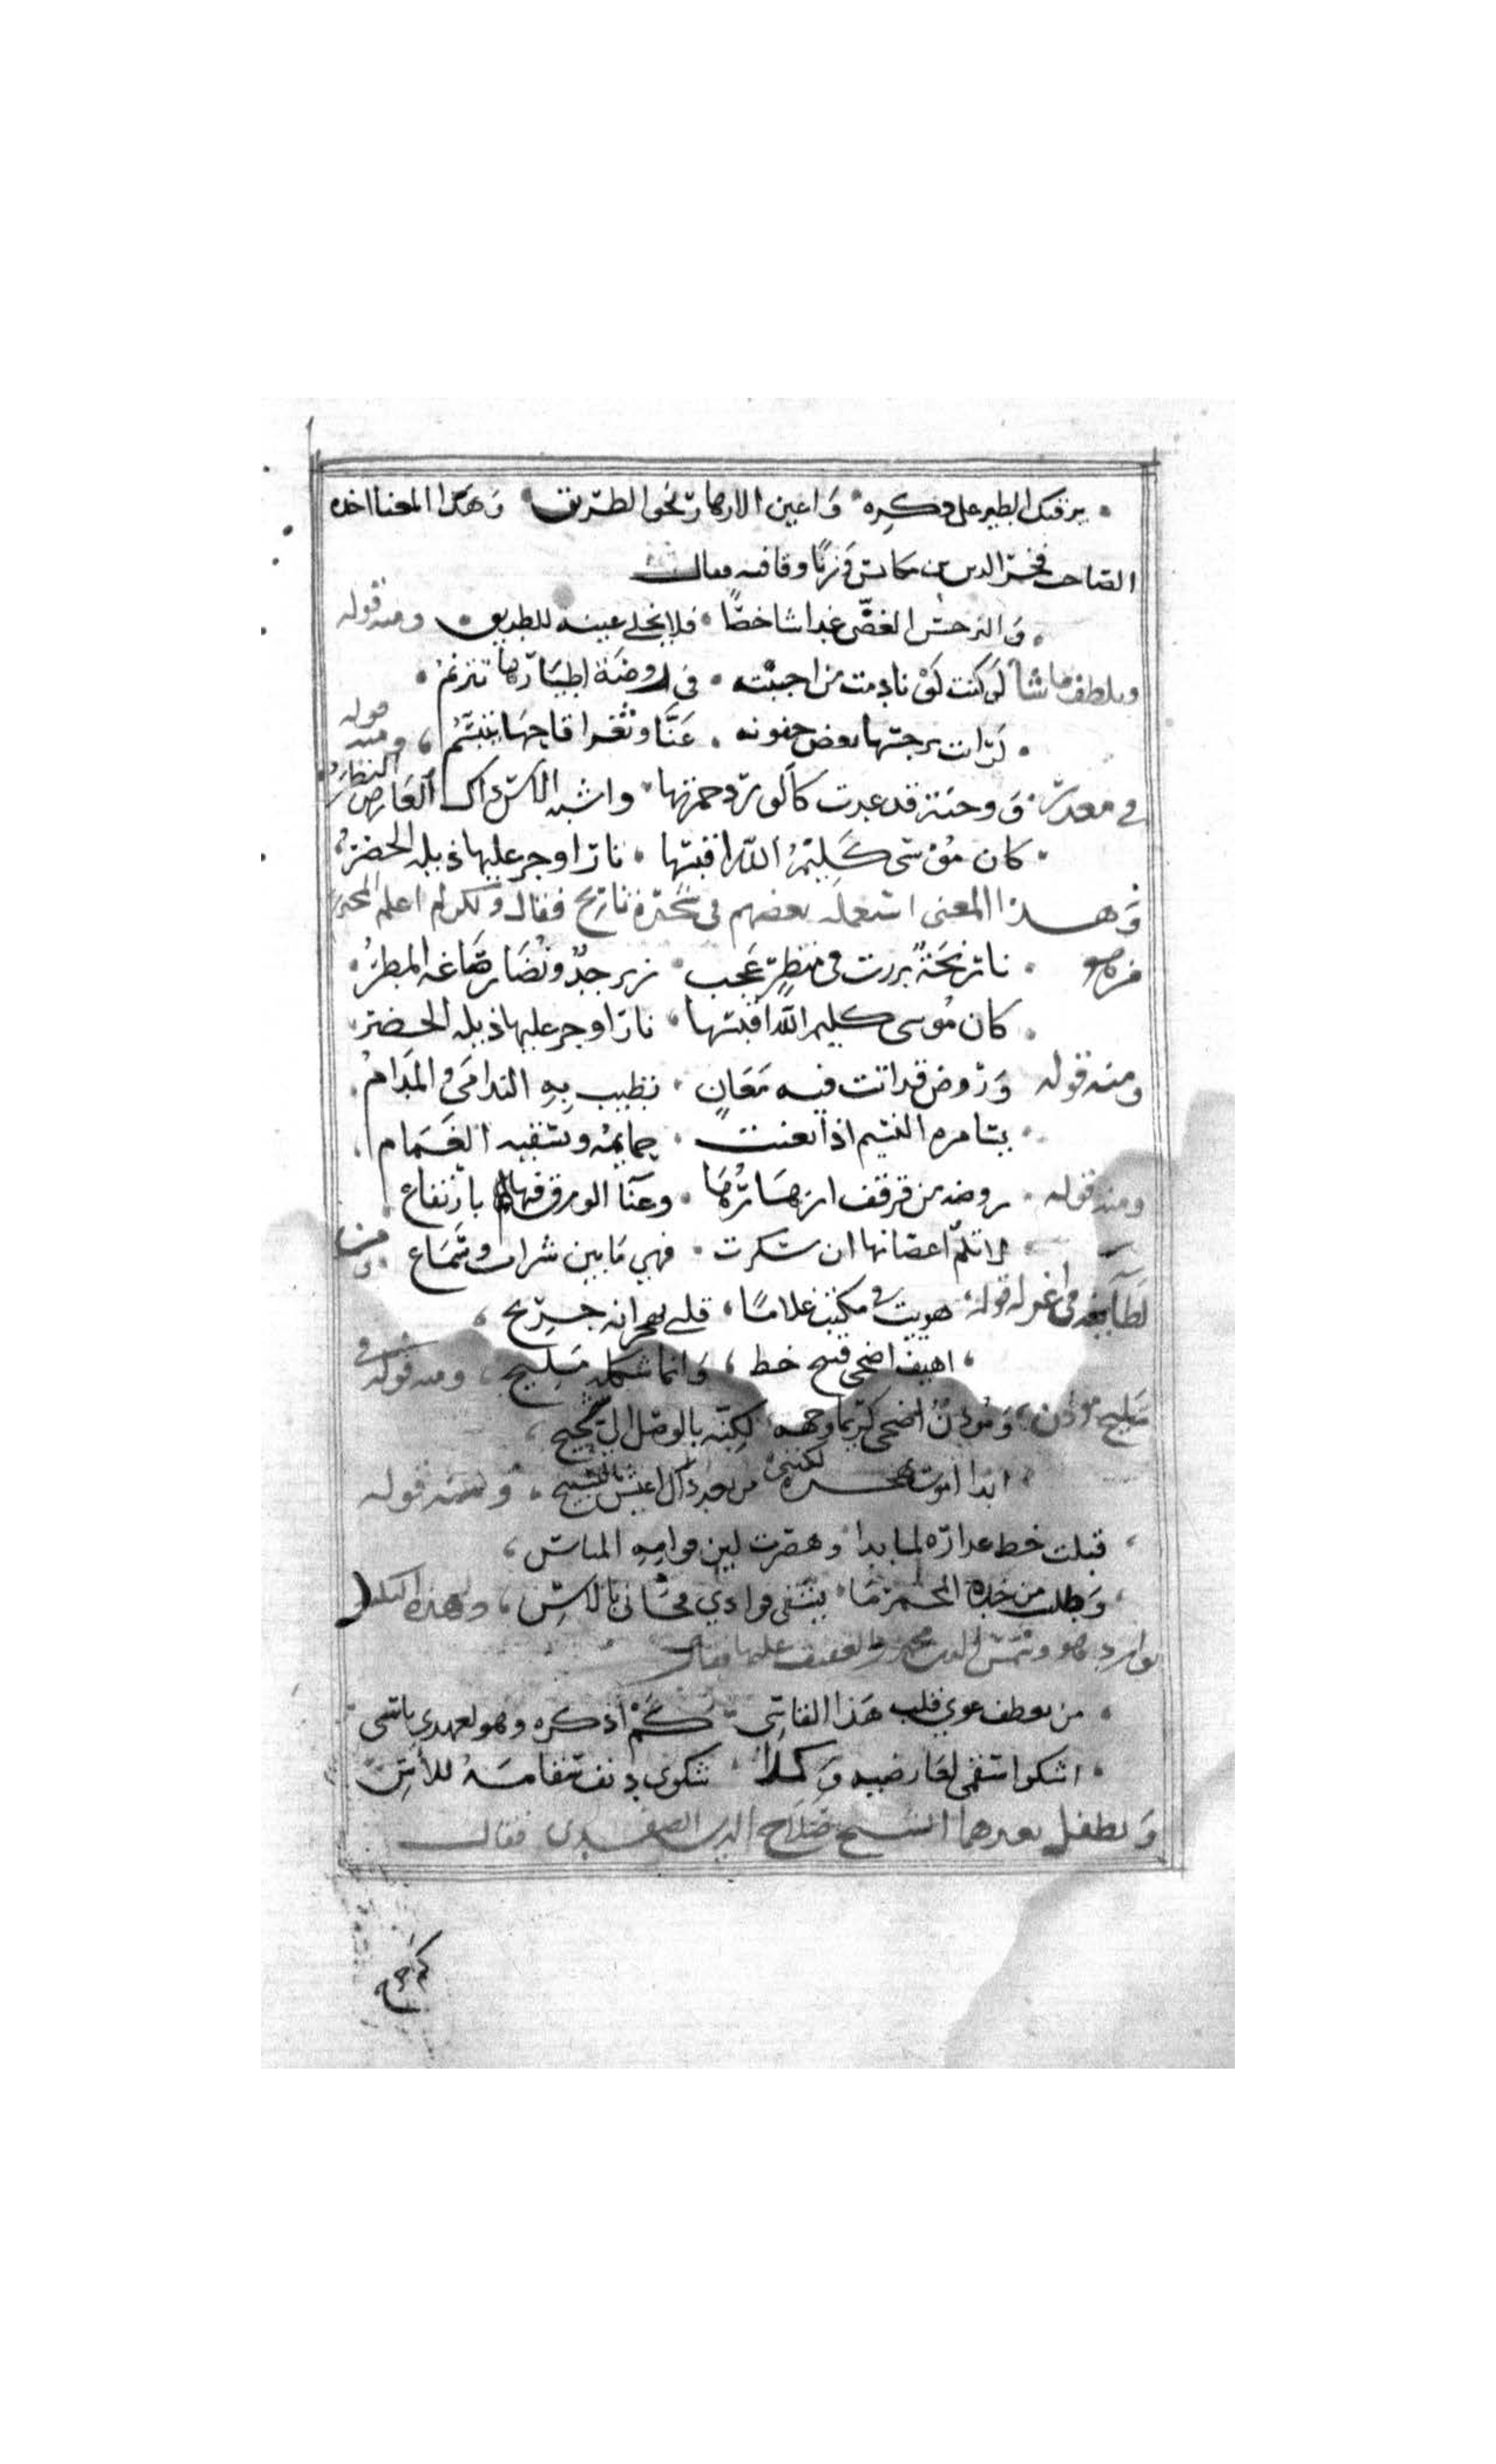 يرقبك الطير على وكره واعين الازهار نحو الطريق وهذا المعنا اخده
الصاحب فخر الدين بن مكانس وزنا وقافيه فقال
والنرجس الغض غدا شاخصا فلا يخلي عينه للطريق ومنه قوله
ويلطف ما شا لو كنت نادمت من احببته في روضة اطيارها تترنم
لرات نرجسها يغض جفونه عنا وثغر اقاحها يتبسم ومنه قوله
في معذر ووجنة قد غدت كالورد حمرتها واشبه الاس ذاك العارض النضر
كان موسى كليم الله اقبسها نارا وجر عليها ذيله الخضر
وهذا المعنى استعمله بعضهم في نارنج فقال ولكن لم اعلم
من هو نارنجة برزت في منظر عجب زبرجد ونضار صاغه المطر
كان موسى كليم الله اقبسها نارا وجر عليها ذيله الخضر
ومنه قوله وروض قد اتت فيه معان يطيب به الندامى والمدام
يسامره النسيم اذا تغنت حمايمه ويسقيه الغمام
ومنه قوله روضة من قرقف ازهارها وغنا الورق فيها بارتفاع
لا تلم اغصانها ان سكرت فهي ما بين شراب وسماع ومن
لطايفه في قوله هويت في مكتب غلاما قلبي بهجرانه جريح
اهيف اضحى قبيح خط وانما شكله مليح ومنه قوله في
مليح موذن وموذن اضحى كريما وجهه لكنه بالوصل اي شحيح
ابدا اموت بهجره لكنني من بعد ذاك اعيش بالتسبيح ومنه قوله
قبلت خط عذاره لما بدا وهصرت لين قوامه المياس
وطلبت من خده المحمر ما يشفي فوادي فحياني بالاس وهذه
توارد هو وشمس الدين محمد بن العفيف عليها فقال
من يعطف نحوي قلب هذا القاسي كم اذكره وهو لعهدي ناسي
اشكو سقمي لعارضيه وكذا شكوى دنف سقامه للاس
وتطفل بعدهما الشيخ صلاح الدين الصفدي فقال
كم جرح